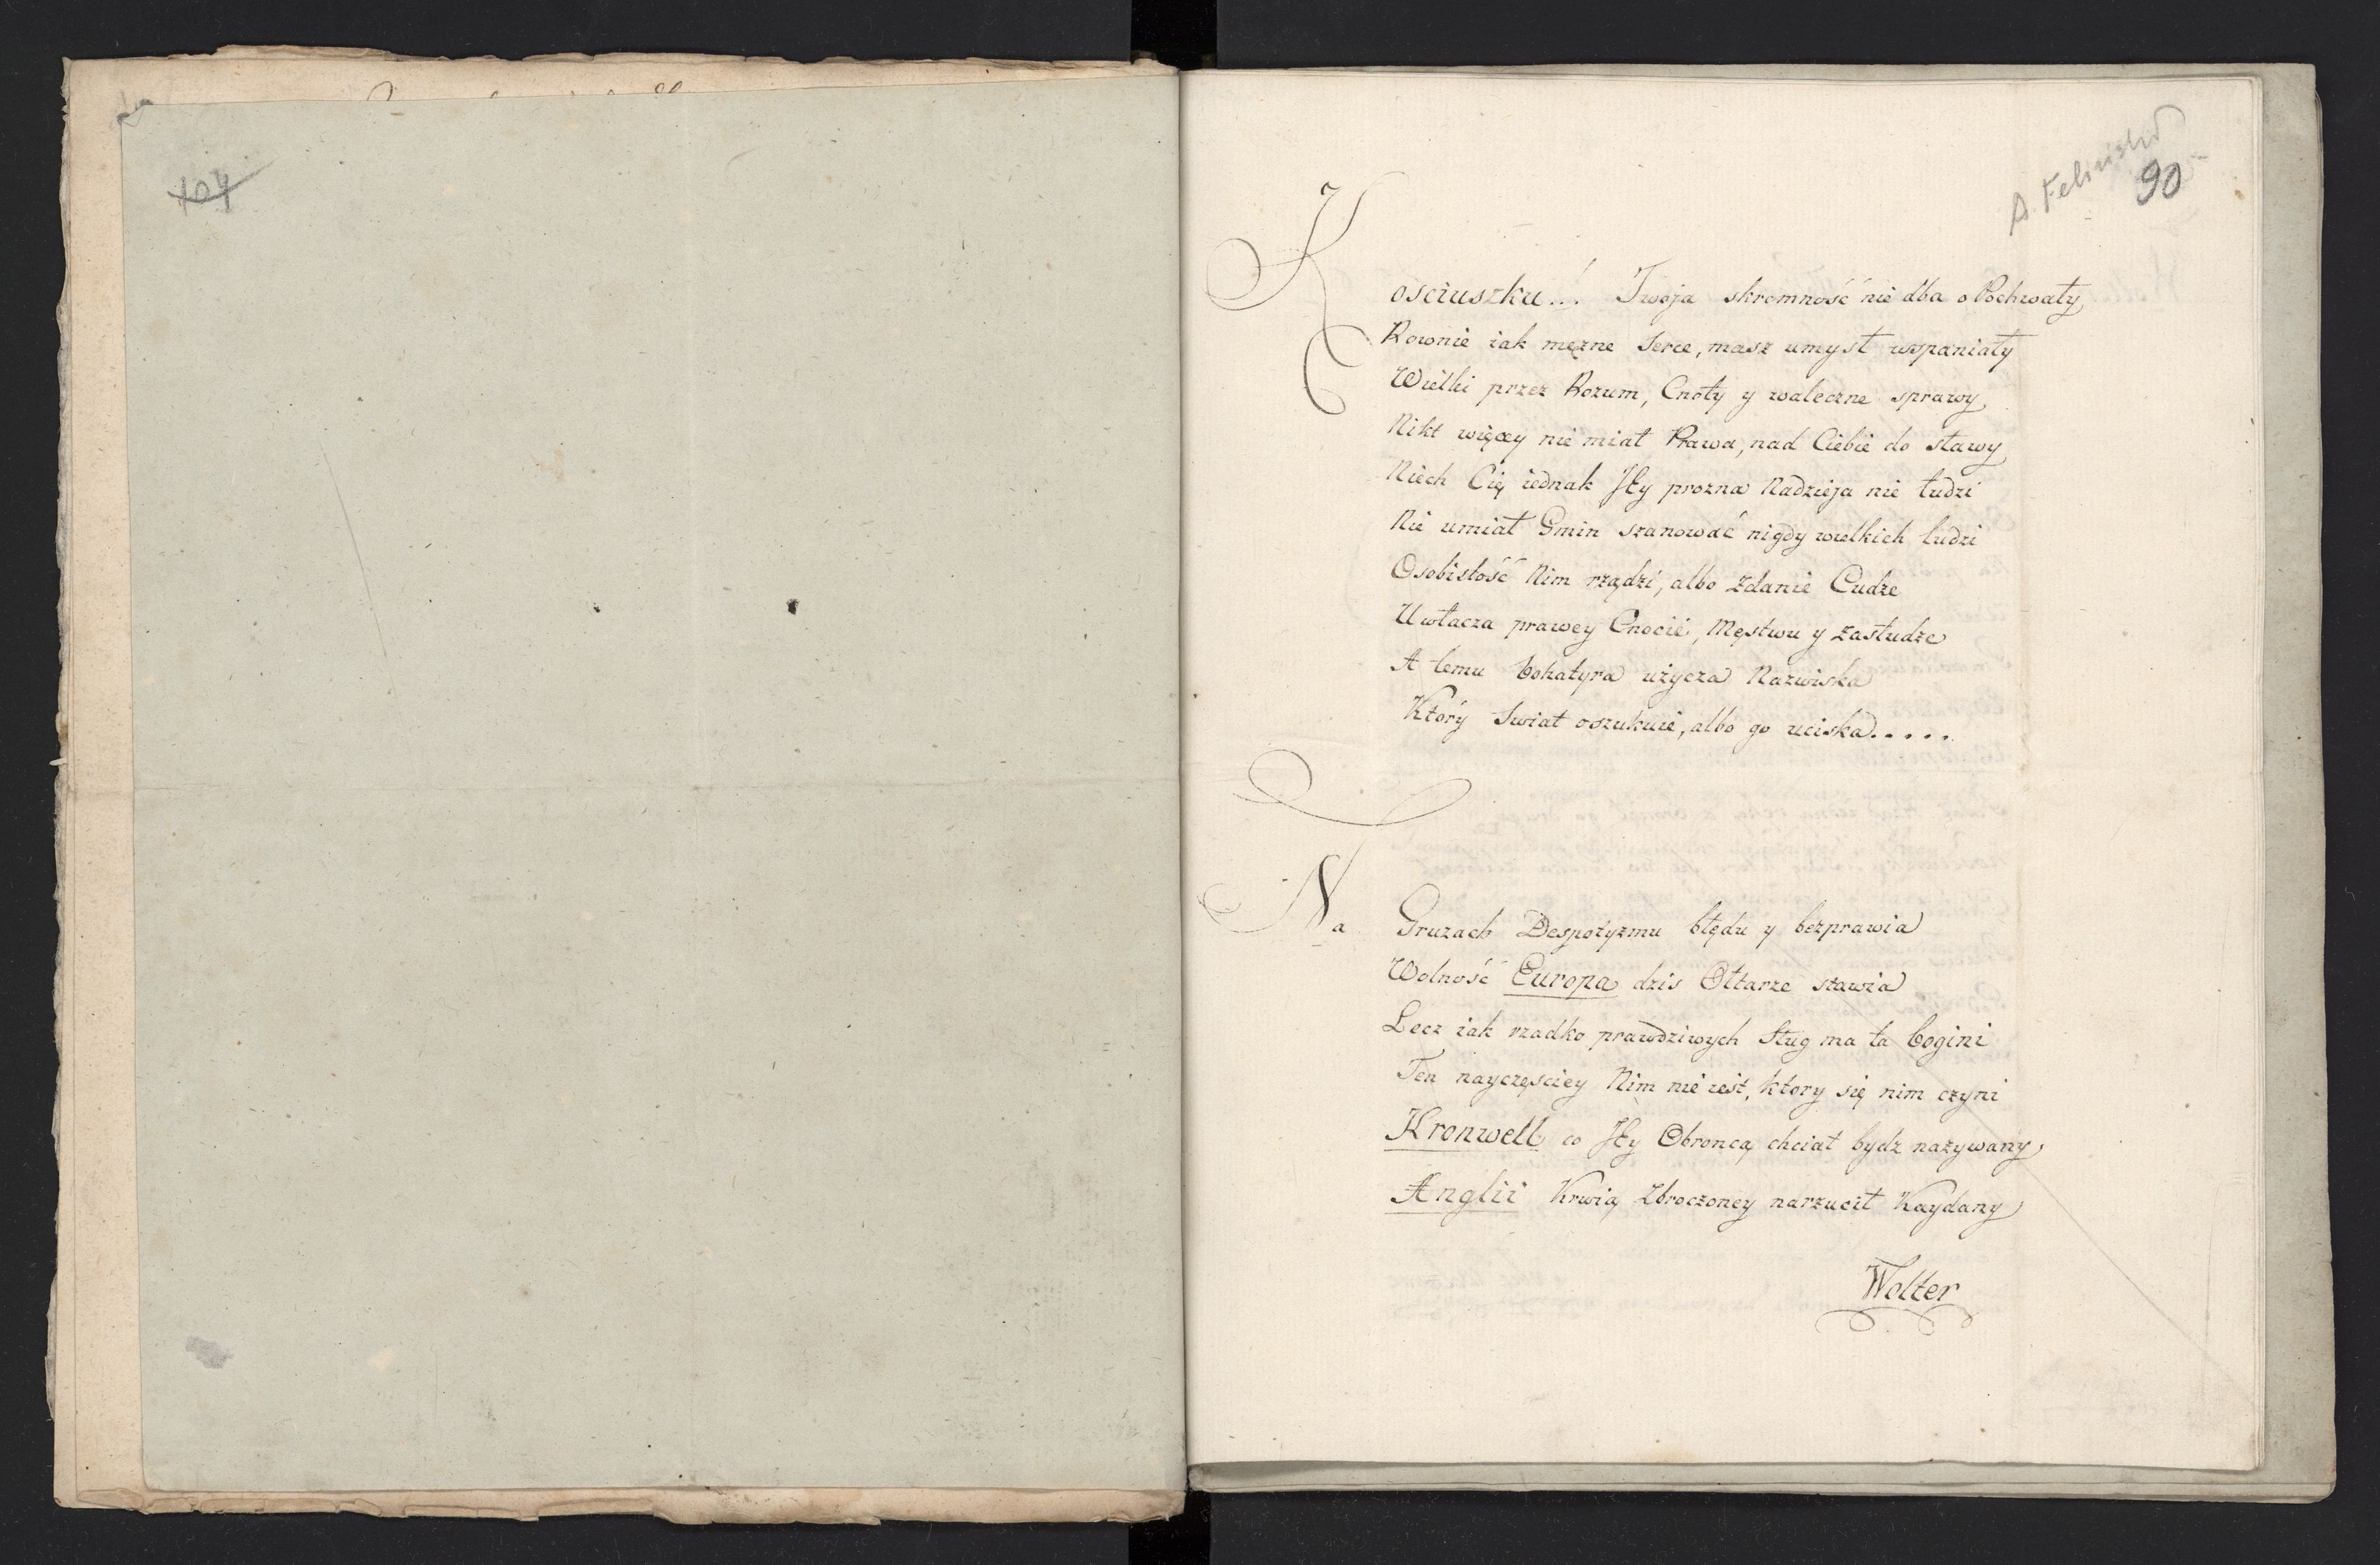 104
A. Feliński
90
Kosciuszku...! Twoja skromność nie dba o Pochwały
Rownie iak mężne Serce, masz umysł wspaniały
Wielki przez Rozum, Cnoty y waleczne sprawy
Nikt więcey nie miał Prawa, nad Ciebie do sławy
Niech Cię iednak Jey prozna Nadzieja nie łudzi
Nie umiał Gmin szanować nigdy wielkich ludzi
Osobistość Nim rządzi, albo Zdanie Cudze
Uwłacza prawey Cnocie, Męstwu y zasłudze
A temu bohatyra użycza Nazwiska
Który Swiat oszukuie, albo go uciska.....
Na Gruzach Despotyzmu błędu y bezprawia
Wolność Europa dzis Ołtarze stawia
Lecz iak rzadko prawdziwych Sług ma ta bogini
Ten nayczęsciey Nim nie iest, ktory się nim czyni
Kronwell co Jey Obroncą chciał bydz nazywany
Anglii Krwią Zbroczoney narzucił Kaydany
Wolter